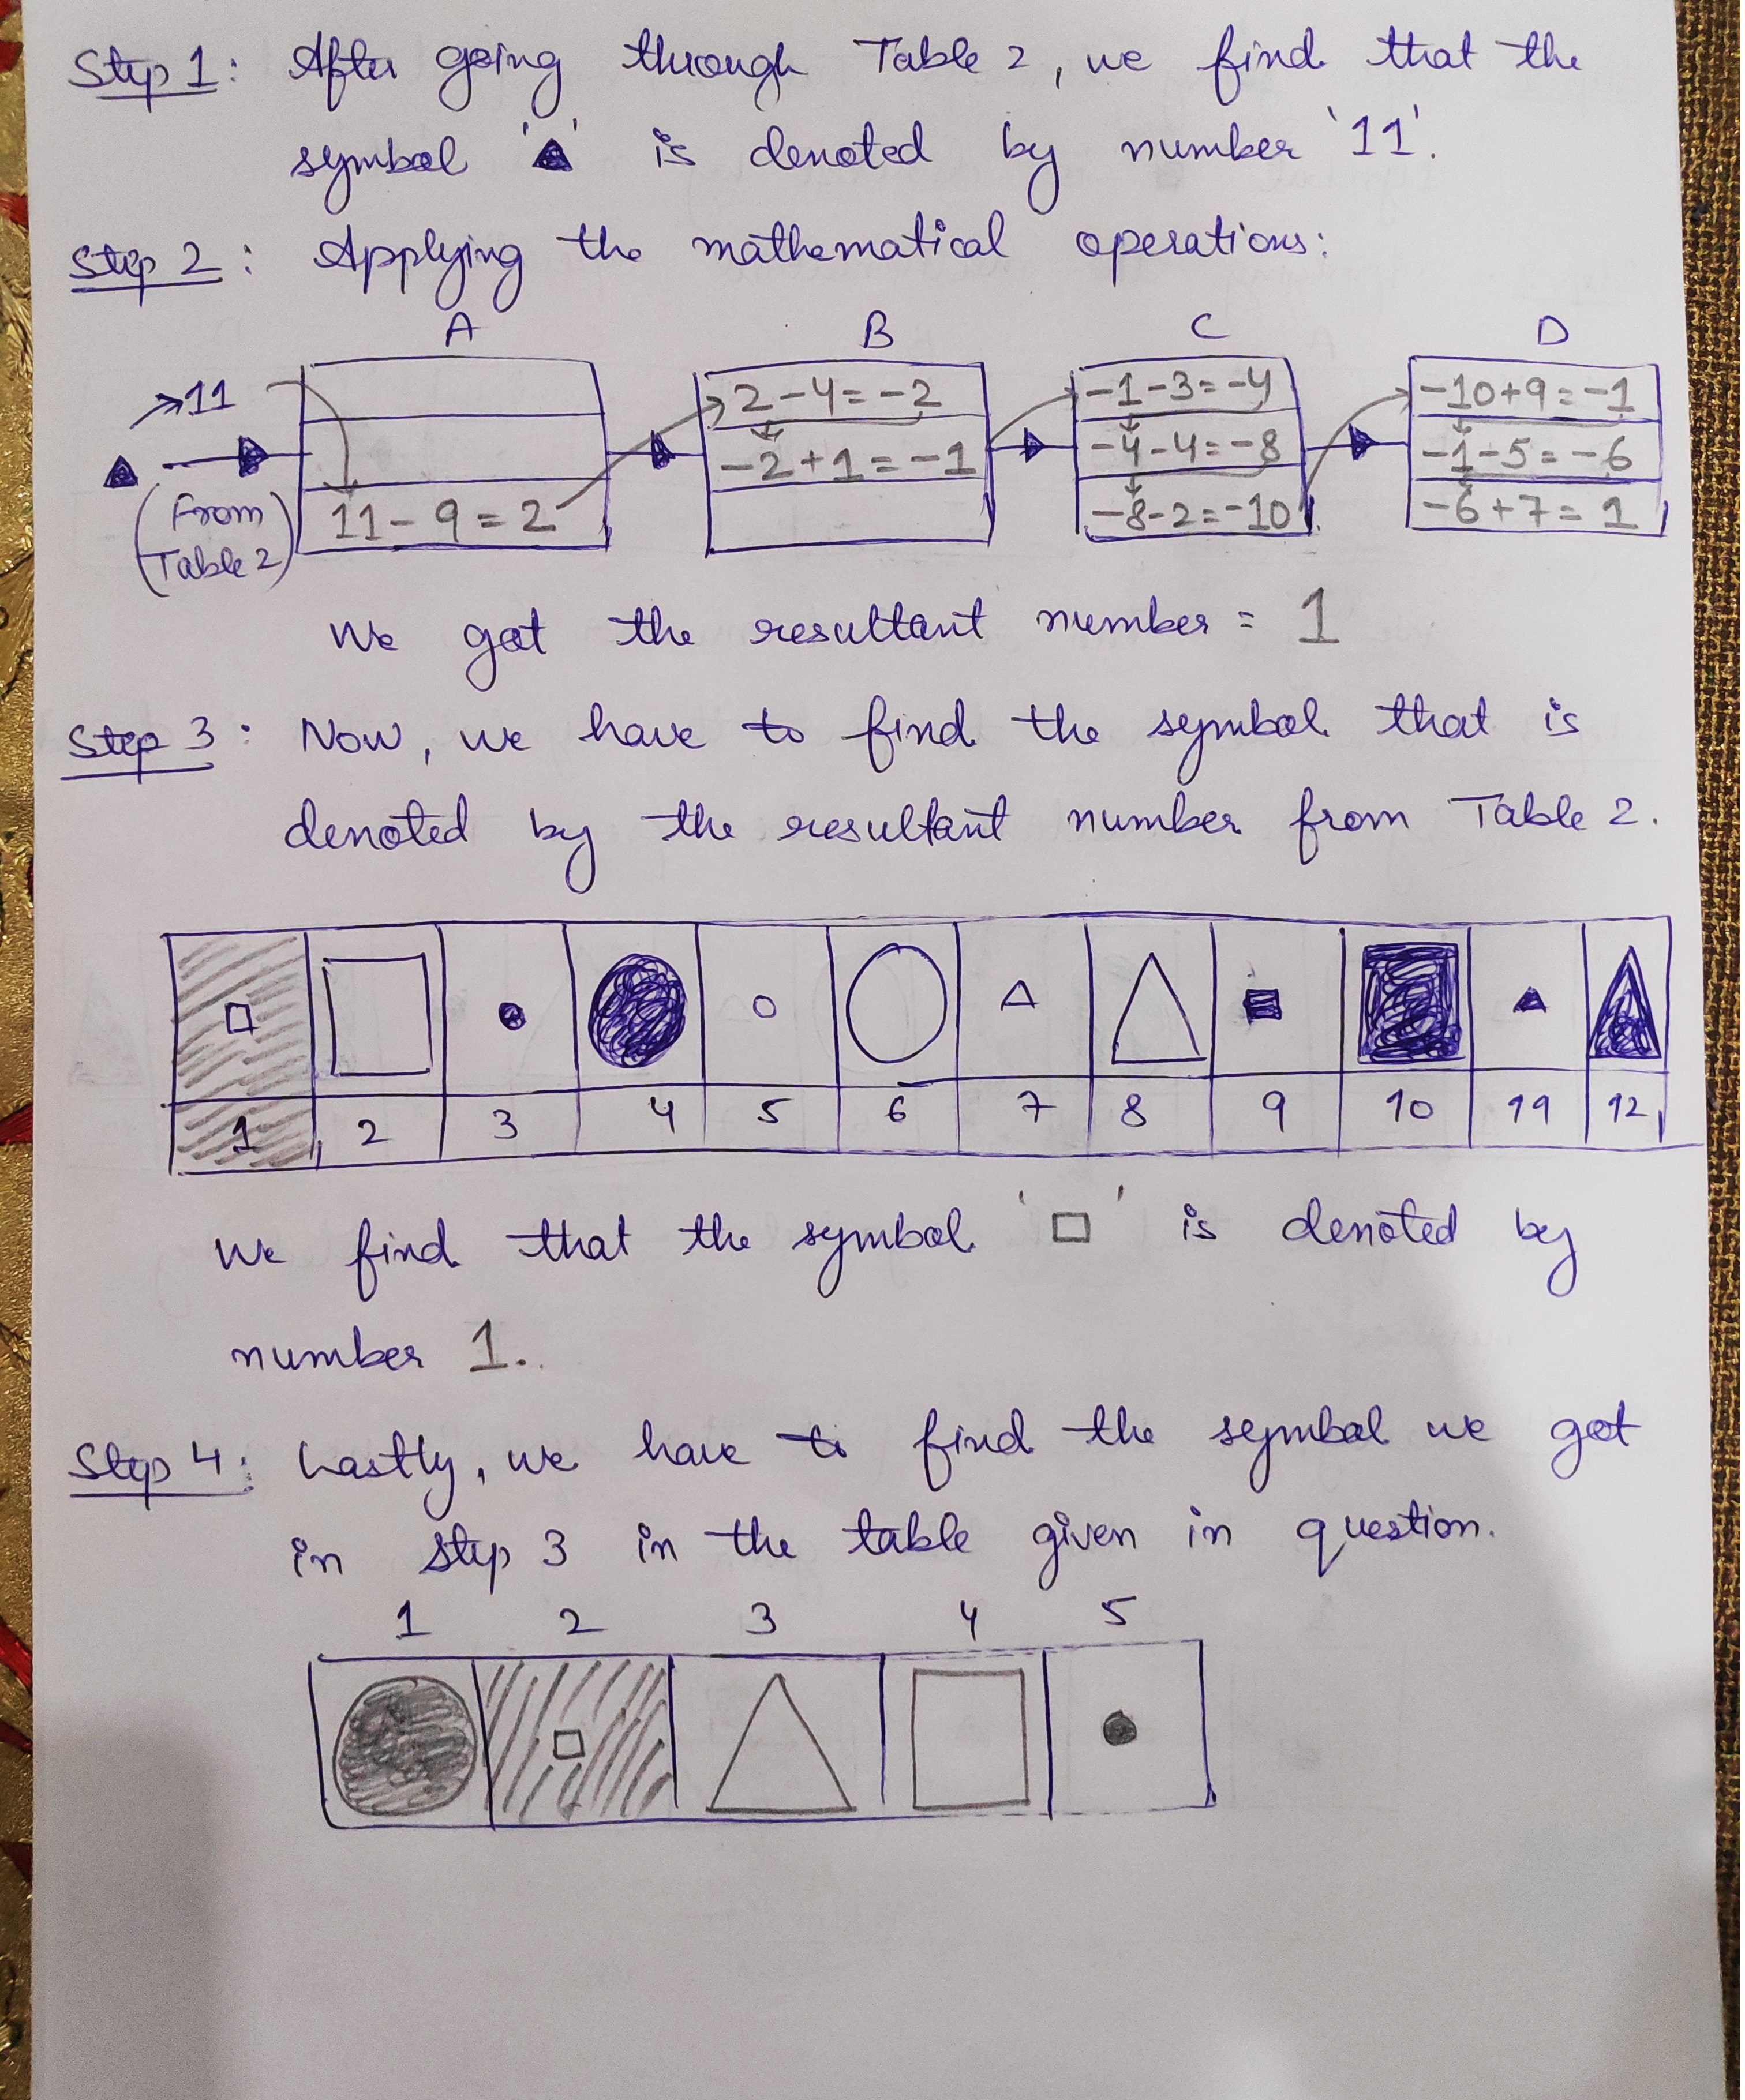 Step 1: After going through Table 2, we find that the
symbol '▲' is denoted by number '11'.
Step 2: Applying the mathematical operations:
A B C D
11
(From
Table 2)
11 - 9 = 2
2 - 4 = -2
-2 + 1 = -1
-1 - 3 = -4
-4 - 4 = -8
-8 - 2 = -10
-10 + 9 = -1
-1 - 5 = -6
-6 + 7 = 1
We got the resultant number = 1
Step 3: Now, we have to find the symbol that is
denoted by the resultant number from Table 2.
1 2 3 4 5 6 7 8 9 10 11 12
We find that the symbol '□' is denoted by
number 1.
Step 4: Lastly, we have to find the symbol we got
in step 3 in the table given in question.
1 2 3 4 5